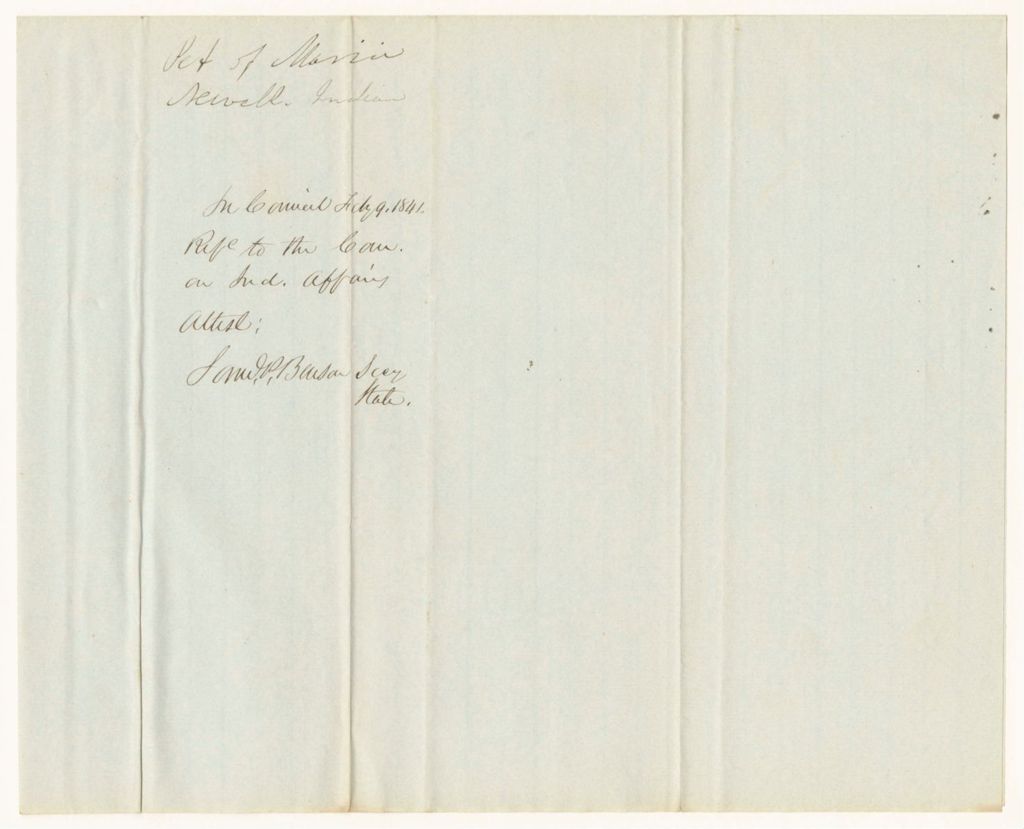 Pet of Maria
Newell. Indian
In Council Feby 9. 1841.
Refd to the Com.
on Ind. Affairs
Attest;
Saml. P. Benson Secy
State.